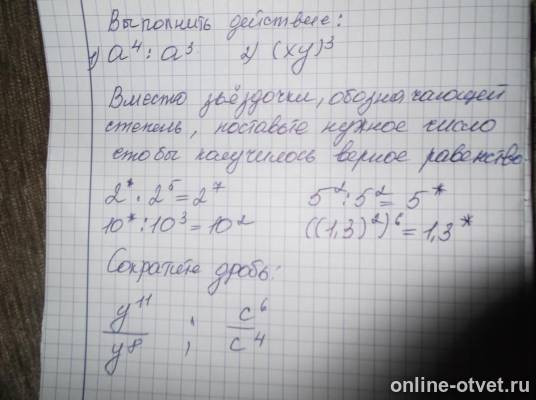 Выполнить действие:
1) a⁴ : a³ 2) (xy)³
Вместо звёздочки, обозначающей
степень, поставьте нужное число
чтобы получилось верное равенство.
2* · 2⁵ = 2⁷ 5² : 5² = 5*
10* : 10³ = 10² ((1,3)²)⁶ = 1,3*
Сократите дробь:
y¹¹/y⁸ ; c⁶/c⁴
online-otvet.ru